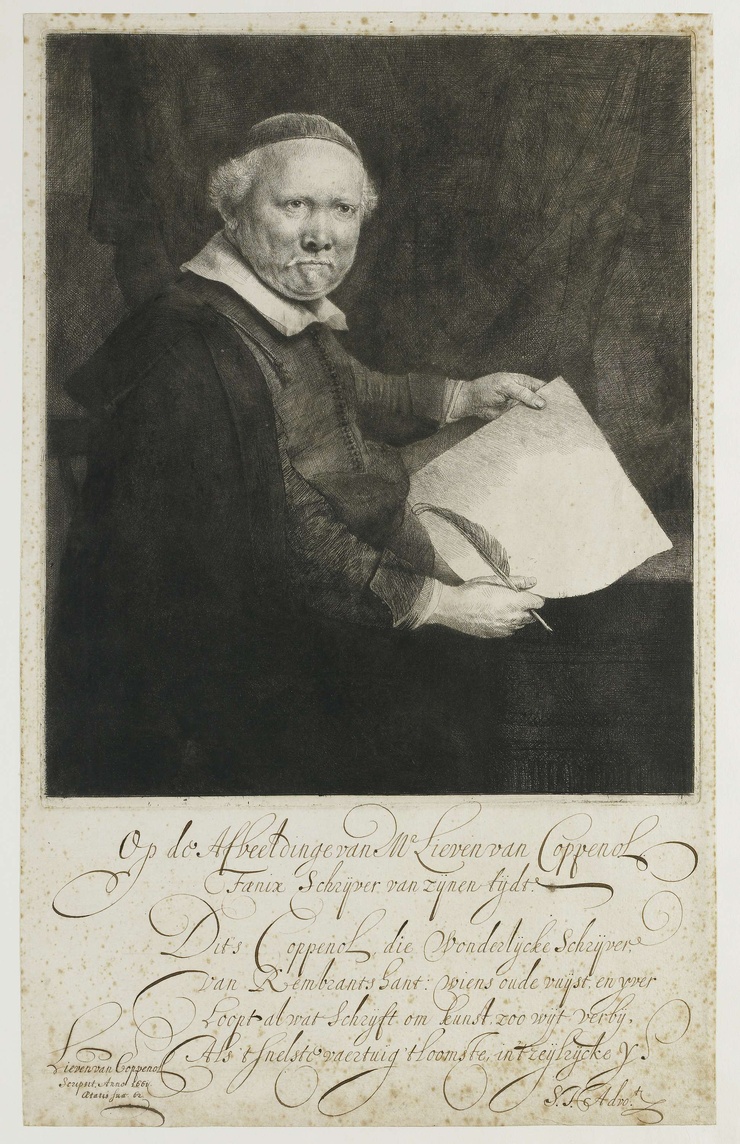 Op de Afbeeldinge van Mr Lieven van Coppenol
Fænix Schrijver van zijnen tijdt
Dit's Coppenol, die Wonderlijcke Schrijver,
van Rembrants hant: wiens oude vuijst, en yver
Loopt al wat Schrijft, om kunst, zoo wijt verbij,
Als 't snelste vaertuig 't loomste, in 't zeijlrijcke Y.
Lieven van Coppenol
Scripsit, Anno
Ætatis suæ 62
Advo.